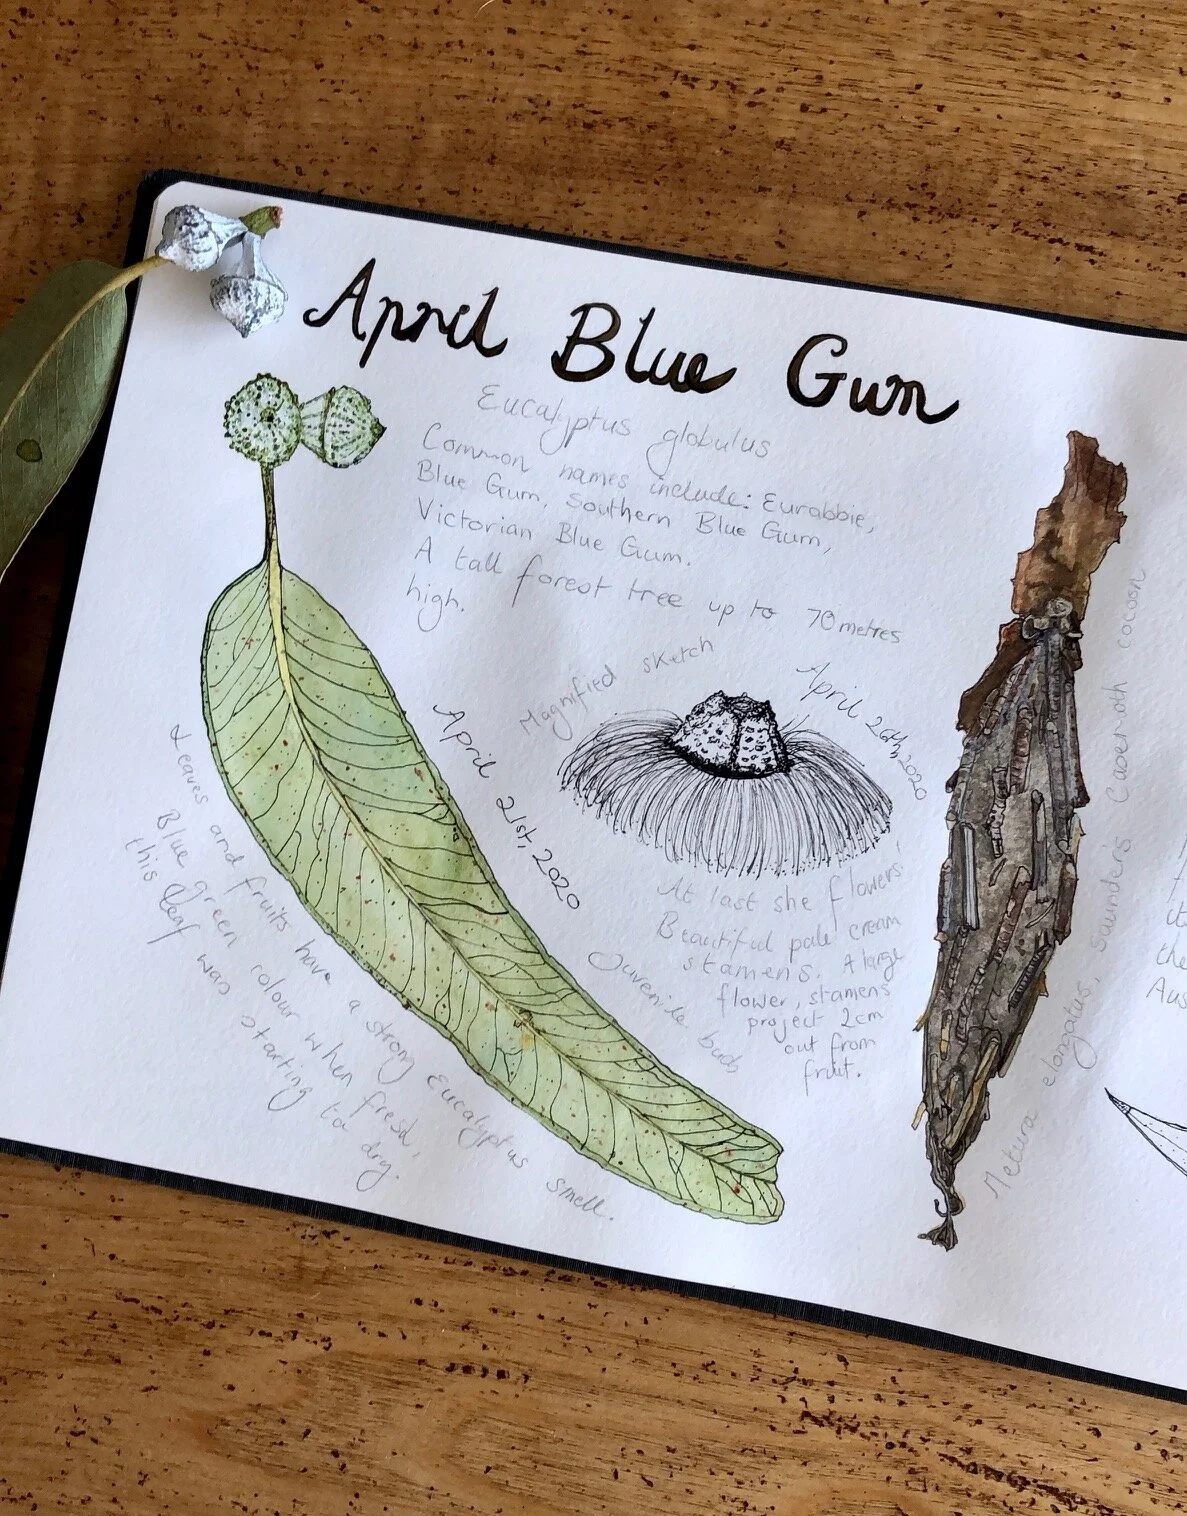 April Blue Gum
Eucalyptus globulus
Common names include: Eurabbie,
Blue Gum, Southern Blue Gum,
Victorian Blue Gum.
A tall forest tree up to 70 metres
high.
Magnified sketch
April 26th, 2020
April 21st, 2020
At last she flowers!
Beautiful pale cream
stamens. A large
flower, stamens
project 2cm
out from
fruit.
Juvenile buds
Leaves and fruits have a strong Eucalyptus smell.
Blue green colour when fresh,
this leaf was starting to dry.
Metura elongatus, Saunders Case moth cocoon
it
the
Aus